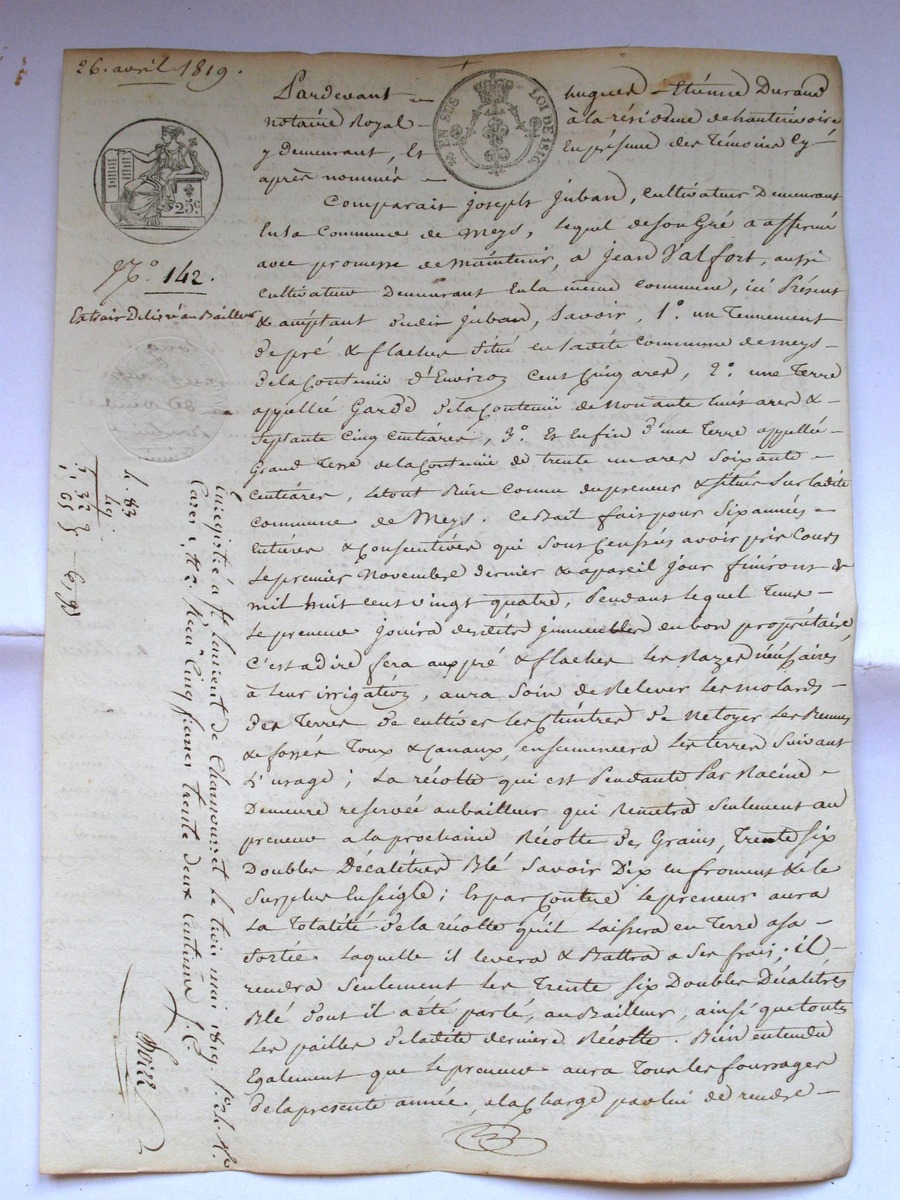 26. avril 1819.
Pardevant hugues - Etiénne Durand
notaire Royal - à la résidence de hauterivoire
y Demeurant, Et En présence des Témoins Cy-
après nommés -
EN SUS LOI DE 1816
25c
Comparait joseph juban, Cultivateur Demeurant
En la Commune de Meys, lequel de son Gré a affermé
avec promesse de maintenir, a jean Valfort, aussi
Cultivateur Demeurant En la même Commune, ici Présent
& acceptant dudit juban, Savoir, 1o. un Tennement
de pré & flaches Situé en ladite Commune de meys -
de la Contenüe d'Environ Cent Cinq ares, 2o. une Terre
appellée Garde de la Contenüe de Nonante huit ares &
Septante Cinq Centiares, 3o. Et Enfin d'une Terre appellée
Grand Terre de la Contenüe de trente un ares Soixante -
Centiares, le tout Bien Connu du preneur & Situés Sur ladite
Commune de Meys. Ce Bail fait pour Six années -
Entières & Consécutives qui Sont Censées avoir pris Cours
le premier Novembre dernier & a pareil jour finiront
mil huit cent vingt quatre, Pendant lequel Tems -
le preneur jouira desdits immeubles en bon propriétaire,
C'est a dire fera aux pré & flaches les Razes nécessaires
à leur irrigation, aura Soin de Relever les molards -
des Terres de cultiver les Cheintres de Netoyer les
& fossés Toux & Canaux, ensemencera les terres Suivant
L'usage; la récolte qui est Pendante Par Racine -
Demeure reservée au bailleur qui Remettra Seulement au
preneur a la prochaine Récolte des Grains, Trente Six
Doubles Décalitres Blé Savoir Dix en froment & le
Surplus En seigle; Et par Contre le preneur aura
La Totalité de la récolte qu'il Laissera en Terre a sa -
Sortie Laquelle il levera & Battra a Ses frais; il -
rendra Seulement les Trente Six Doubles Décalitres
Blé dont il a été parlé, au Bailleur, ainsi que toutes
Les pailles de ladite derniere Récolte. Bien entendu
Egalement que le preneur aura Tous les fourrages
de la presente année, a la Charge par lui de rendre -
No. 142.
Extrait Délivré au Bailleur
4. 83
49
5. 32
1. 65
6. 97
Enregistré à St. Laurent de Chamousset le trois mai 1819.
Reçu Cinq francs trente deux Centimes